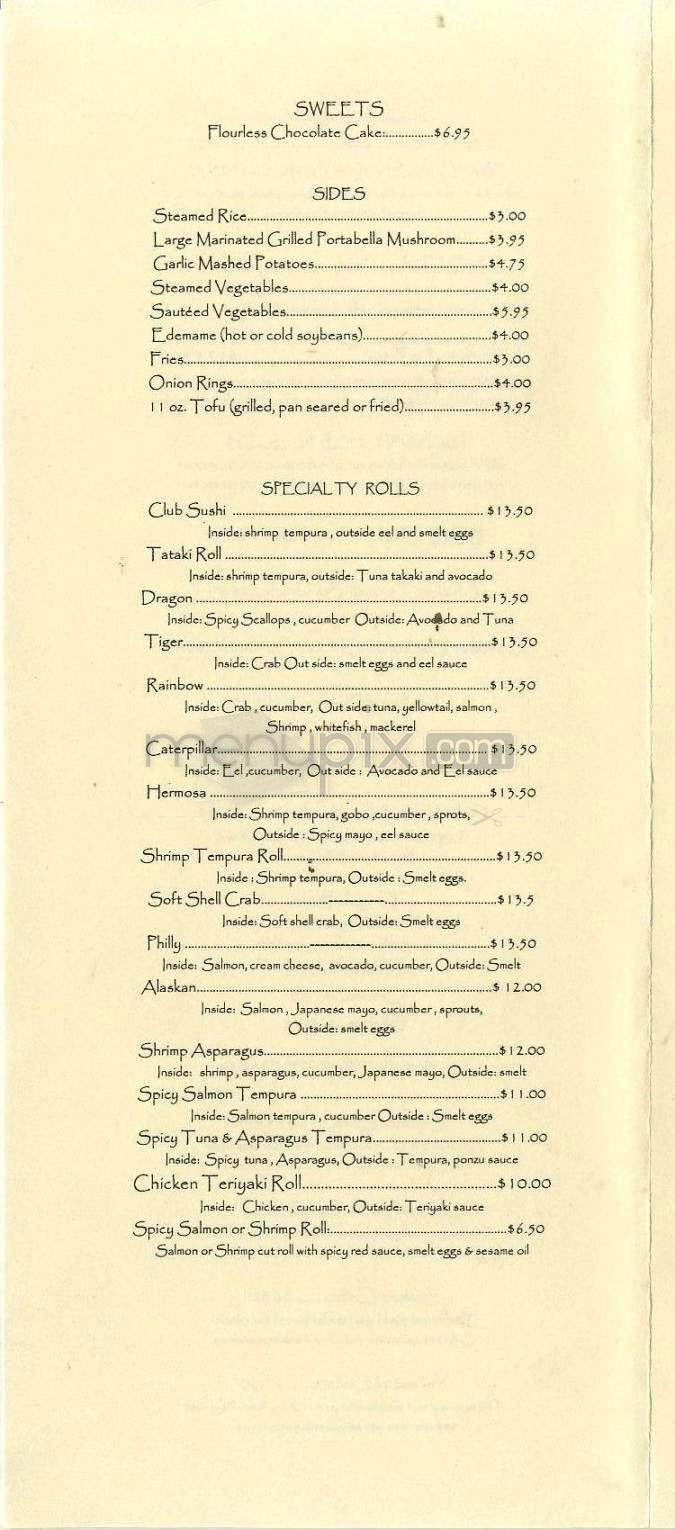 SWEETS
Flourless Chocolate Cake:..............$6.95
SIDES
Steamed Rice..........................................................................$3.00
Large Marinated Grilled Portabella Mushroom..........$3.95
Garlic Mashed Potatoes.....................................................$4.75
Steamed Vegetables.............................................................$4.00
Sautéed Vegetables...............................................................$5.95
Edemame (hot or cold soybeans).......................................$4.00
Fries...............................................................................................$3.00
Onion Rings...............................................................................$4.00
11 oz. Tofu (grilled, pan seared or fried)...........................$3.95
SPECIALTY ROLLS
Club Sushi ............................................................................ $13.50
Inside: shrimp tempura , outside eel and smelt eggs
Tataki Roll ................................................................................$13.50
Inside: shrimp tempura, outside: Tuna takaki and avocado
Dragon .......................................................................................$13.50
Inside: Spicy Scallops , cucumber Outside: Avocado and Tuna
Tiger..............................................................................................$13.50
Inside: Crab Out side: smelt eggs and eel sauce
Rainbow ......................................................................................$13.50
Inside: Crab , cucumber, Out side: tuna, yellowtail, salmon ,
Shrimp , whitefish , mackerel
menupix.com
Caterpillar................................................................................... $13.50
Inside: Eel ,cucumber, Out side : Avocado and Eel sauce
Hermosa .....................................................................................$13.50
Inside: Shrimp tempura, gobo ,cucumber , sprots,
Outside : Spicy mayo , eel sauce
Shrimp Tempura Roll.................................................................$13.50
Inside : Shrimp tempura, Outside : Smelt eggs.
Soft Shell Crab.....................-----------..................................$13.5
Inside: Soft shell crab, Outside: Smelt eggs
Philly ......................................------------....................................$13.50
Inside: Salmon, cream cheese, avocado, cucumber, Outside: Smelt
Alaskan..........................................................................................$ 12.00
Inside: Salmon , Japanese mayo, cucumber , sprouts,
Outside: smelt eggs
Shrimp Asparagus.......................................................................$12.00
Inside: shrimp , asparagus, cucumber, Japanese mayo, Outside: smelt
Spicy Salmon Tempura .............................................................$11.00
Inside: Salmon tempura , cucumber Outside : Smelt eggs
Spicy Tuna & Asparagus Tempura.......................................$11.00
Inside: Spicy tuna , Asparagus, Outside : Tempura, ponzu sauce
Chicken Teriyaki Roll................................................$10.00
Inside: Chicken , cucumber, Outside: Teriyaki sauce
Spicy Salmon or Shrimp Roll:......................................................$6.50
Salmon or Shrimp cut roll with spicy red sauce, smelt eggs & sesame oil